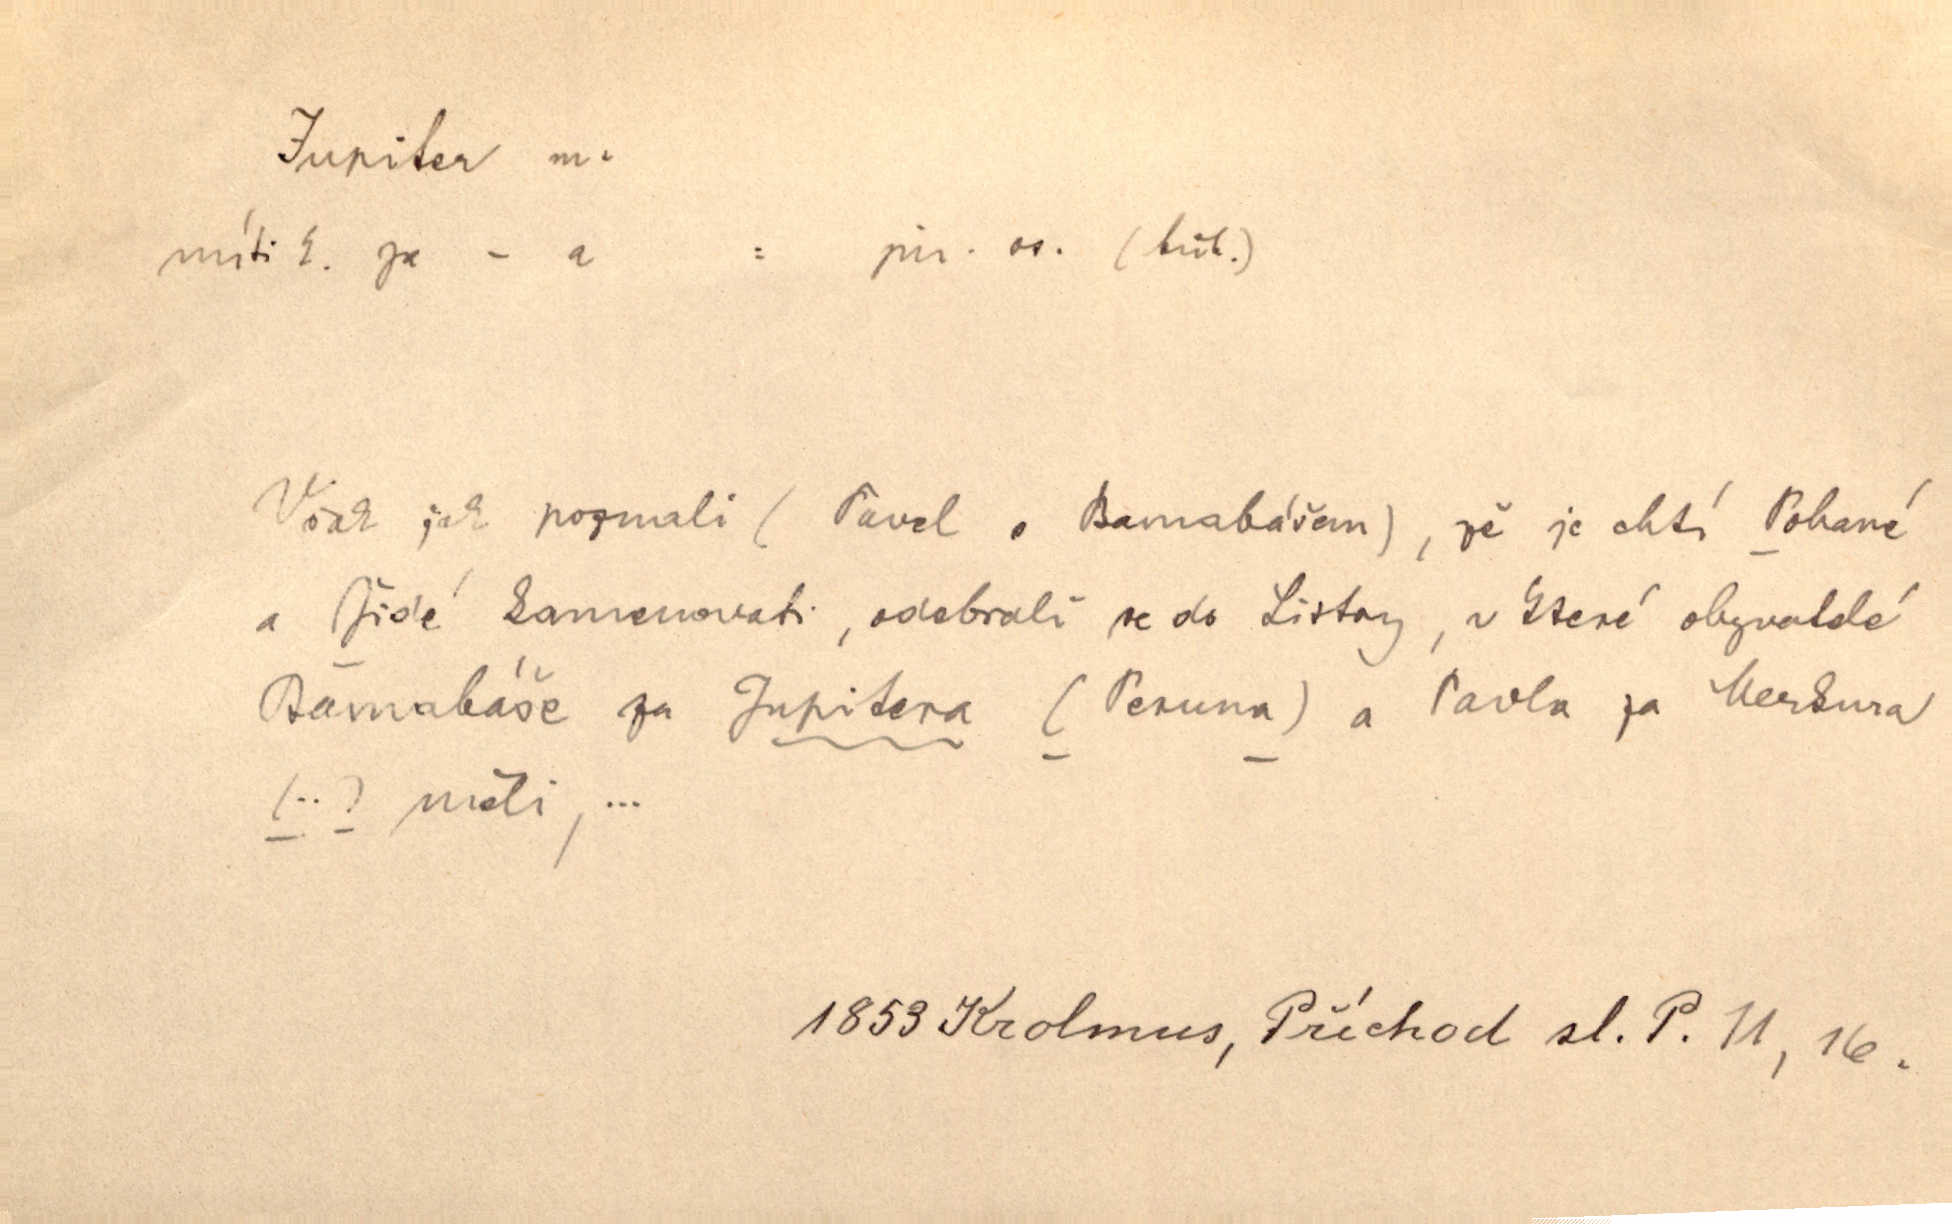 Jupiter m.
míti k. za - a = přir. os. (bibl.)
Však jak poznali (Pavel s Barnabášem), že je chtí Pohané
a Židé kamenovati, odebrali se do Listry, v které obyvatelé
Barnabáše za Jupitera (Peruna) a Pavla za Merkura
(..) měli, ...
1853 Krolmus, Příchod sl. P. 11, 16.